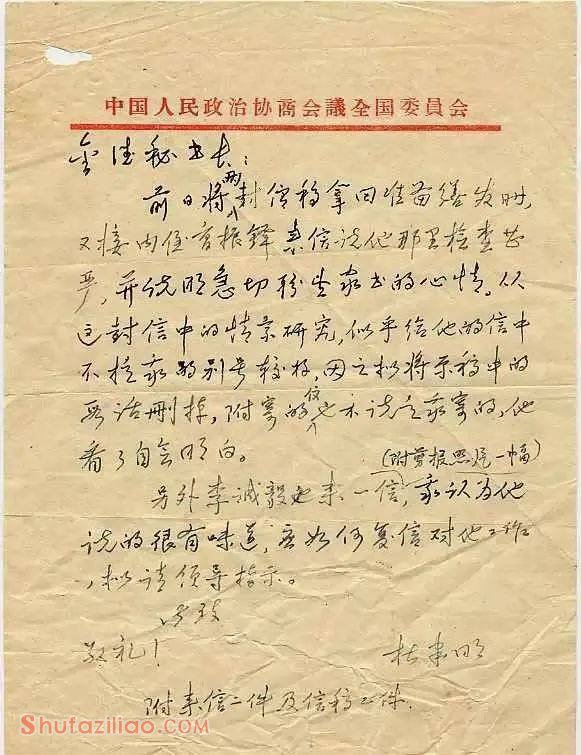 中国人民政治协商会議全国委員会
金城秘书长：
前日将两封信稿拿回准备缮发时，
又接内侄曹振铎来信说他那里检查甚
严，并说明急切盼望家书的心情。从
这封信中的情景研究，似乎给他的信中
不提我的别号较好，因之拟将原稿中的
话删掉，附寄的信也不说是我寄的，他
看了自会明白。
(附剪报照片一幅)
另外李诚毅也来一信，我认为他
说的很有味道，应如何复信对他工作
，拟请领导指示。
此致
敬礼！ 杜聿明
附来信二件及信稿二件.
Shufaziliao.com